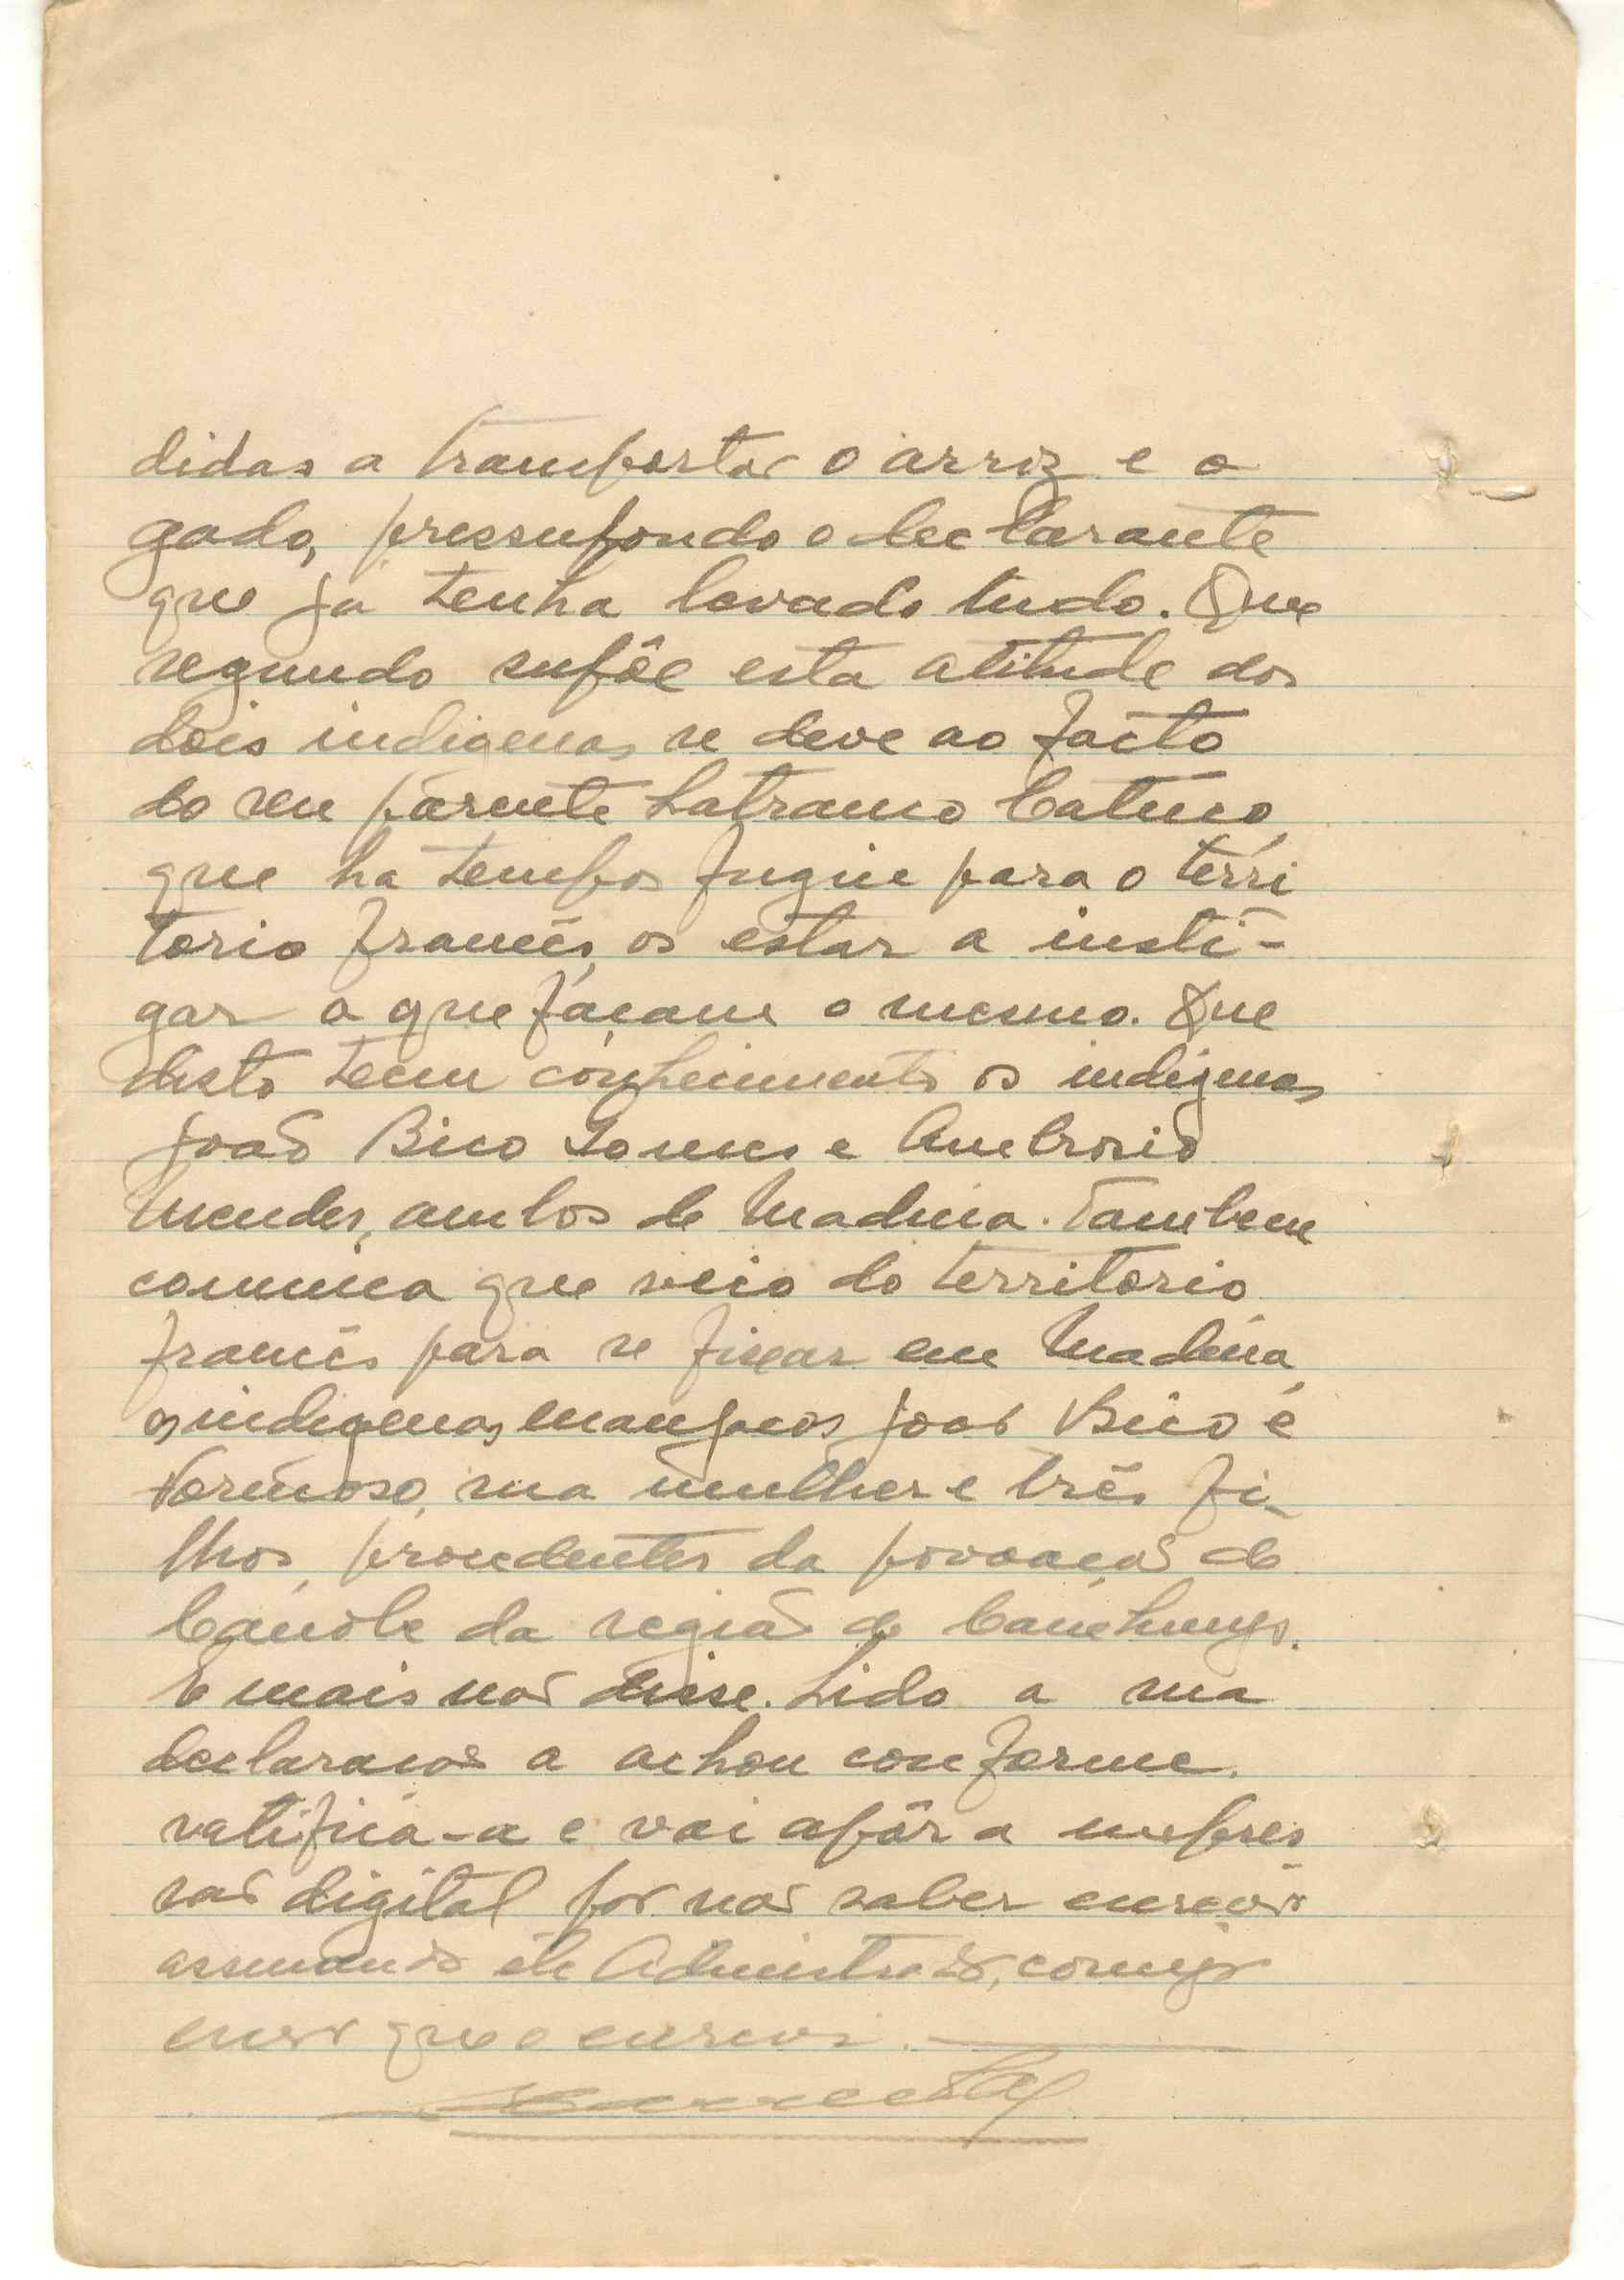 didas a transportar o arroz e o
gado, pressupondo o declarante
que já tenha levado tudo. Que
segundo supõe esta atitude dos
dois indigenas se deve ao facto
do seu parente Latranco Catuco,
que ha tempos fugiu para o terri
torio francês, os estar a insti-
gar a que façam o mesmo. Que
disto teem conhecimento os indigenas
João Bico Gomes e Ambrosio
Mendes, ambos de Madina. Tambem
comunica que veio do territorio
francês para se fixar em Madina,
os indigenas manjacos João Bico e
Formoso, sua mulher e três fi-
lhos, procedentes da povoação de
Canóle da região de Canchungo.
E mais não disse. Lido a sua
declaração a achou conforme,
ratifica-a e vai apôr a impres
são digital por não saber escrever
assinando êle Administrador, comigo
que o escrevi.